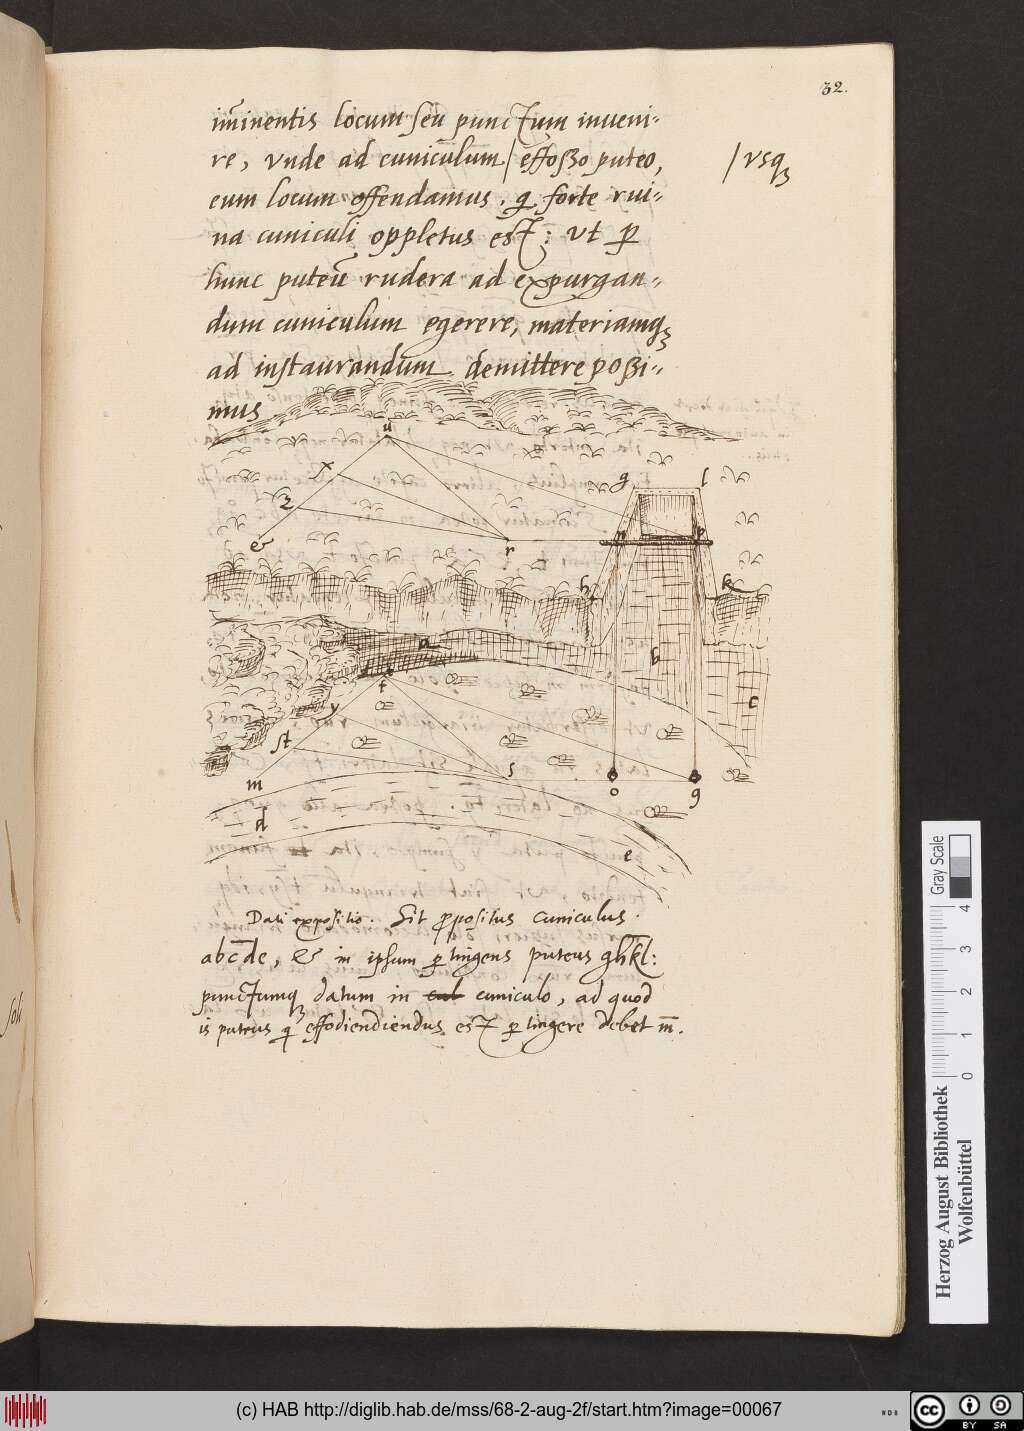 32.
im̃inentis locum seu punctum inueni-
re, vnde ad cuniculum / effosso puteo,
/ vsq
eum locum offendamus, q forte rui-
na cuniculi oppletus est: vt p
hunc puteũ rudera ad expurgan-
dum cuniculum egerere, materiamq
ad instaurandum demittere possi-
mus
u
x
z
&
r
g
l
n
p
h
k
a
b
c
t
y
st
m
s
o
q
d
e
Dati expositio. Sit ppositus cuniculus
abcde, & in ipsum ptingens puteus ghkl:
punctumq datum in cuniculo, ad quod
is puteus q effodiendiendus est ptingere debet m̃.
soli
Gray Scale
0 1 2 3 4
Herzog August Bibliothek
Wolfenbüttel
(c) HAB http://diglib.hab.de/mss/68-2-aug-2f/start.htm?image=00067
cc BY SA